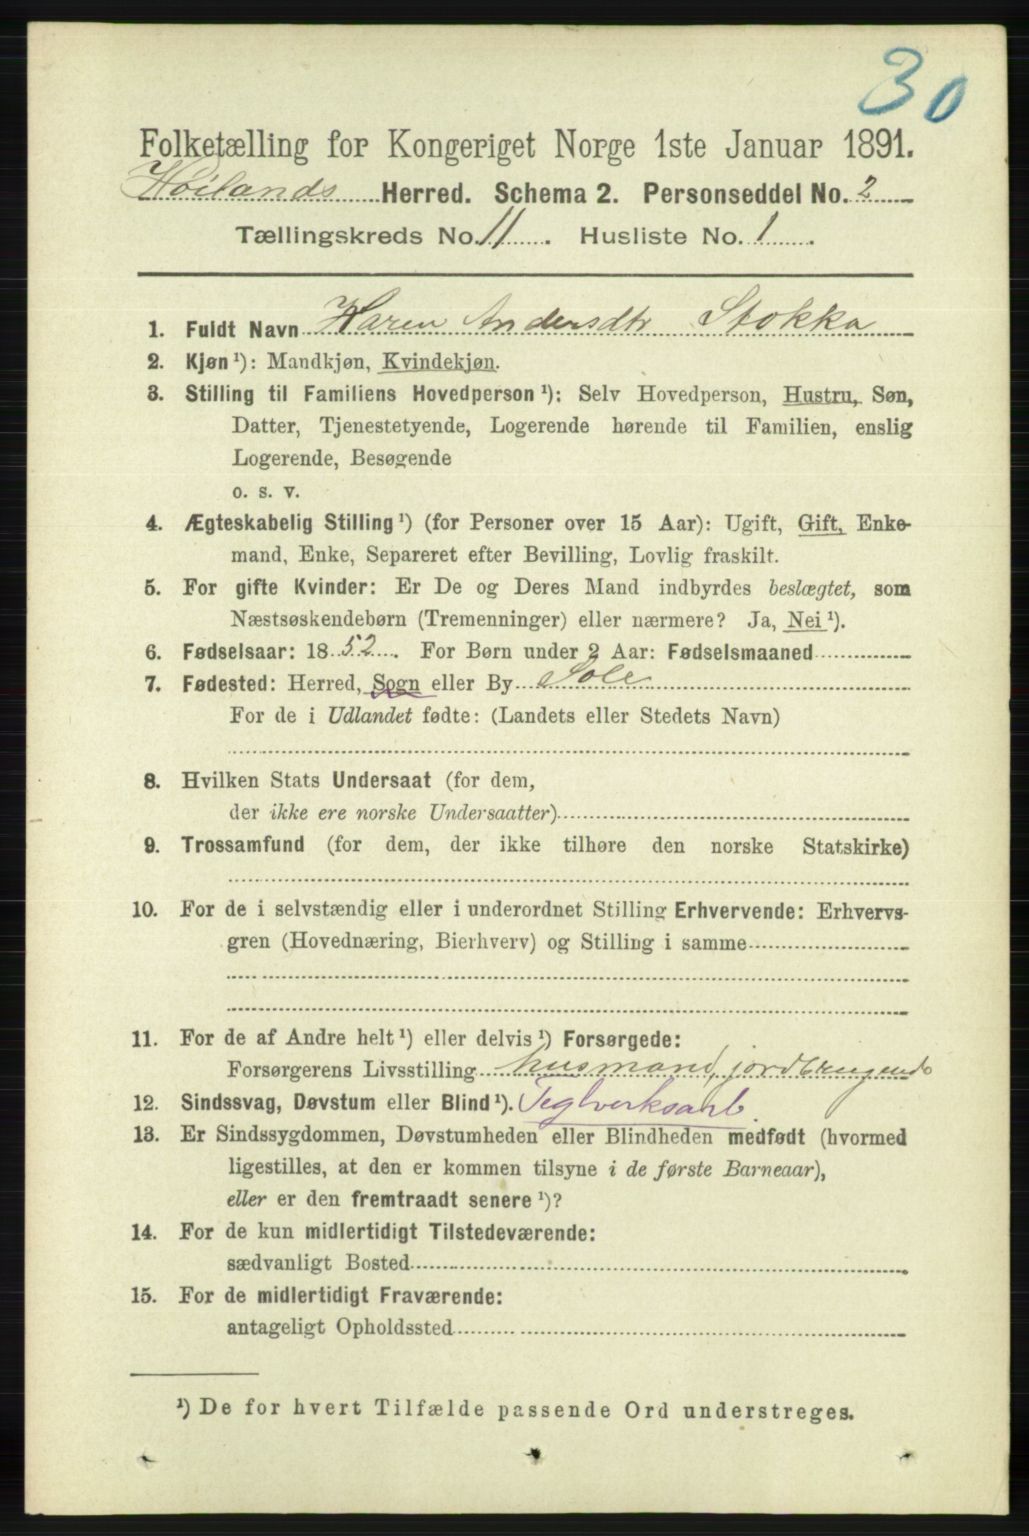 30
Folketælling for Kongeriget Norge 1ste Januar 1891.
Høilands Herred. Schema 2. Personseddel No. 2
Tællingskreds No. 11. Husliste No. 1.
1. Fuldt Navn Karen Andersdtr Stokka
2. Kjøn¹): Mandkjøn, Kvindekjøn.
3. Stilling til Familiens Hovedperson¹): Selv Hovedperson, Hustru, Søn,
Datter, Tjenestetyende, Logerende hørende til Familien, enslig
Logerende, Besøgende
o. s. v.
4. Ægteskabelig Stilling¹) (for Personer over 15 Aar): Ugift, Gift, Enke-
mand, Enke, Separeret efter Bevilling, Lovlig fraskilt.
5. For gifte Kvinder: Er De og Deres Mand indbyrdes beslægtet, som
Næstsøskendebørn (Tremenninger) eller nærmere? Ja, Nei¹).
6. Fødselsaar: 1852. For Børn under 2 Aar: Fødselsmaaned
7. Fødested: Herred, Sogn eller By Sole
For de i Udlandet fødte: (Landets eller Stedets Navn)
8. Hvilken Stats Undersaat (for dem,
der ikke ere norske Undersaatter)
9. Trossamfund (for dem, der ikke tilhøre den norske Statskirke)
10. For de i selvstændig eller i underordnet Stilling Erhvervende: Erhvervs-
gren (Hovednæring, Bierhverv) og Stilling i samme
11. For de af Andre helt¹) eller delvis¹) Forsørgede:
Forsørgerens Livsstilling husmand, jordbrugende
12. Sindssvag, Døvstum eller Blind¹). Teglverksarb.
13. Er Sindssygdommen, Døvstumheden eller Blindheden medfødt (hvormed
ligestilles, at den er kommen tilsyne i de første Barneaar),
eller er den fremtraadt senere¹)?
14. For de kun midlertidigt Tilstedeværende:
sædvanligt Bosted
15. For de midlertidigt Fraværende:
antageligt Opholdssted
¹) De for hvert Tilfælde passende Ord understreges.